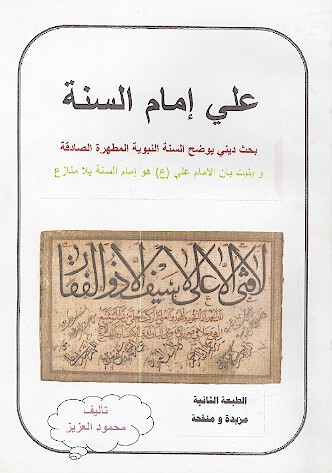 علي إمام السنة
بحث ديني يوضح السنة النبوية المطهرة الصادقة
و يثبت بأن الامام علي (ع) هو إمام السنة بلا منازع
لا فتى الا علي لا سيف الا ذو الفقار
الطبعة الثانية
مزيدة و منقحة
تأليف
محمود العزيز